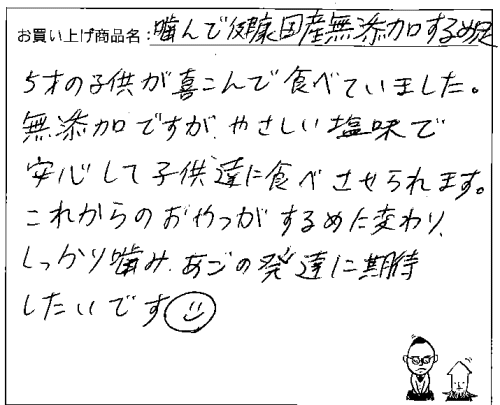 お買い上げ商品名:噛んで健康国産無添加するめ足
5才の子供が喜こんで食べていました。
無添加ですが、やさしい塩味で
安心して子供達に食べさせられます。
これからのおやつがするめに変わり、
しっかり噛み、あごの発達に期待
したいです